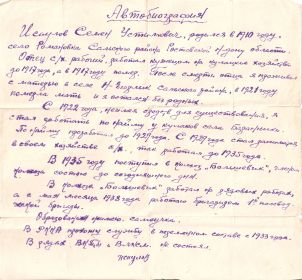 Автобиография
Испулов Семен Устинович, родился в 1910 году,
село Романовка Сальского района Ростовской н/дону области.
Отец с/х. рабочий, работал кулацком хозяйстве
до 1917 года, а в 1917 году помер. После смерти отца я проживал
с матерью в селе Н. Егорлык Сальского района, в 1921 году
померла мать и я остался без родных.
С 1922 года, для существования, я
стал работать по найму у кулаков села
По найму проработал до 1929 года. С 1929 года стал заниматься
в своем хозяйстве с/х. так работал до 1935 года.
В 1935 году поступил в колхоз „Большевик", членом
колхоза состою до сегодняшнего дня.
В колхозе „Большевик" работал рабочим,
а с мая месяца 1938 года работаю бригадиром 1й
бригады.
Образование самоучка.
В РККА прохожу службу в составе с 1933 года.
В рядах ВКП(б) и ВЛКСМ. не состоял.
Испулов